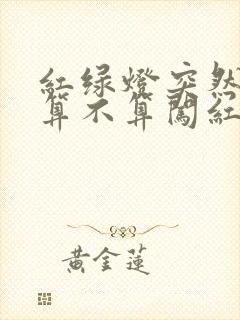 紅绿燈突然
算不算闖紅
黄金蓮